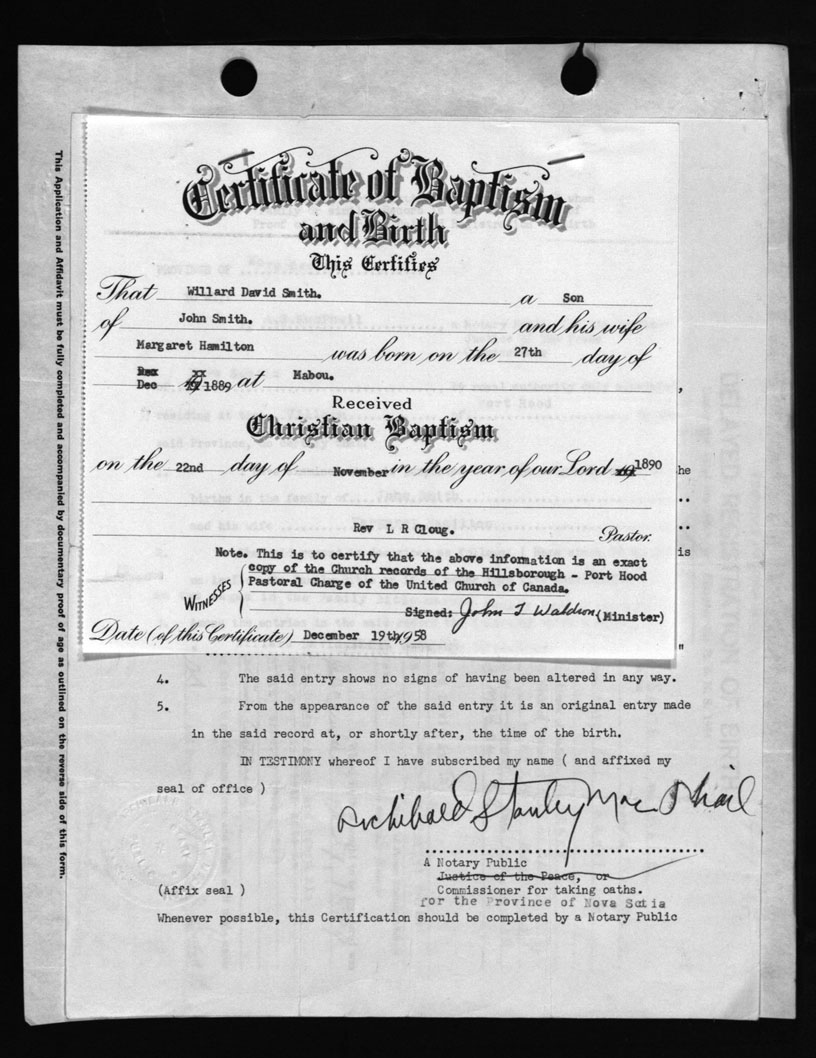 Certificate of Baptism
and Birth
This Certifies
That Willard David Smith. a Son
of John Smith. and his wife
Margaret Hamilton was born on the 27th day of
Dec xx
Dec 19 1889 at Mabou.
Received
Christian Baptism
on the 22nd day of November in the year of our Lord 19 1890
Rev L R Cloug. Pastor.
Note. This is to certify that the above information is an exact
copy of the Church records of the Hillsborough - Port Hood
Pastoral Charge of the United Church of Canada.
WITNESSES
Signed: John T Waldron (Minister)
Date (of this Certificate) December 19th, 1958
he
is
4. The said entry shows no signs of having been altered in any way.
5. From the appearance of the said entry it is an original entry made
in the said record at, or shortly after, the time of the birth.
IN TESTIMONY whereof I have subscribed my name ( and affixed my
seal of office )
Archibald Stanley MacPhail
A Notary Public
Justice of the Peace, or
(Affix seal ) Commissioner for taking oaths.
for the Province of Nova Scotia
Whenever possible, this Certification should be completed by a Notary Public
This Application and Affidavit must be fully completed and accompanied by documentary proof of age as outlined on the reverse side of this form.